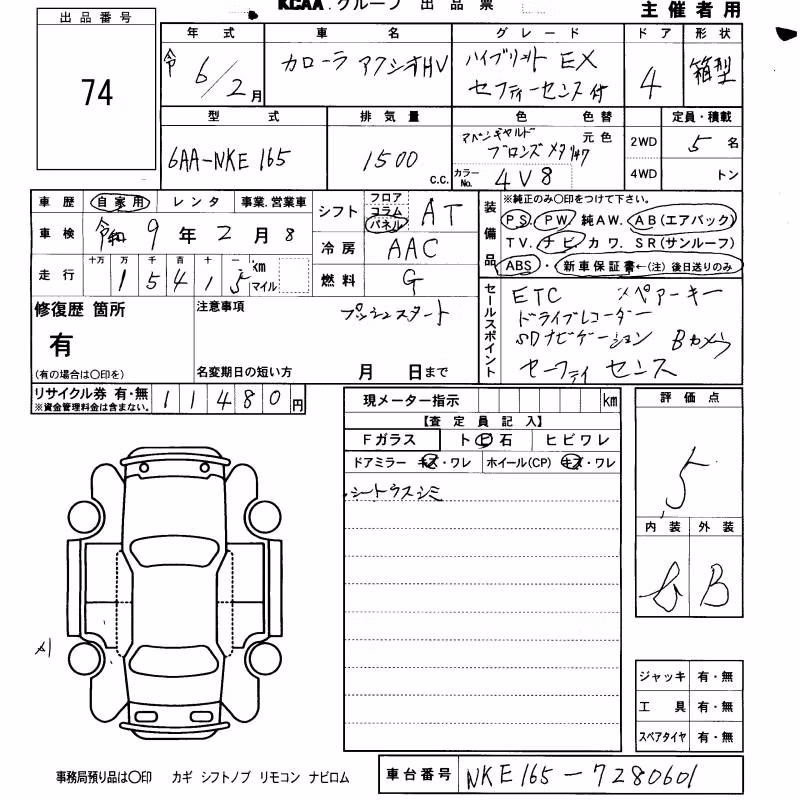 KCAA.グループ 出品票
主催者用
出品番号
74
年式 車名 グレード ドア 形状
令 6/2月 カローラ アクシオHV ハイブリット EX
セフティーセンス付 4 箱型
型式 排気量 色 色替 定員・積載
6AA-NKE165 1500 c.c.
ブロンズメタ 元色
カラーNo. 4V8
2WD 5 名
4WD トン
車歴 自家用 レンタ 事業.営業車
車検 令和 9年 2月 8
走行 十万 万 千 百 十 一 km マイル
1 5 4 1 5
シフト フロア コラム パネル AT
冷房 AAC
燃料 G
装備品
※純正のみ〇印をつけて下さい。
PS. PW. 純AW. AB(エアバック)
TV. ナビ カワ. SR(サンルーフ)
ABS ・ 新車保証書←(注)後日送りのみ
修復歴 箇所
有
(有の場合は〇印を)
注意事項
プッシュスタート
名変期日の短い方 月 日まで
セールスポイント
ETC スペアーキー
ドライブレコーダー
SDナビゲーション Bカメラ
セーフティ センス
リサイクル券 有・無
※資金管理料金は含まない。
11480円
現メーター指示 km
【査定員記入】
Fガラス ト ビ 石 ヒビワレ
ドアミラー キズ・ワレ ホイール(CP) キズ・ワレ
シートウスシミ
評価点
5
内装 外装
B
ジャッキ 有・無
工具 有・無
スペアタイヤ 有・無
事務局預り品は〇印 カギ シフトノブ リモコン ナビロム
車台番号 NKE165-7280601